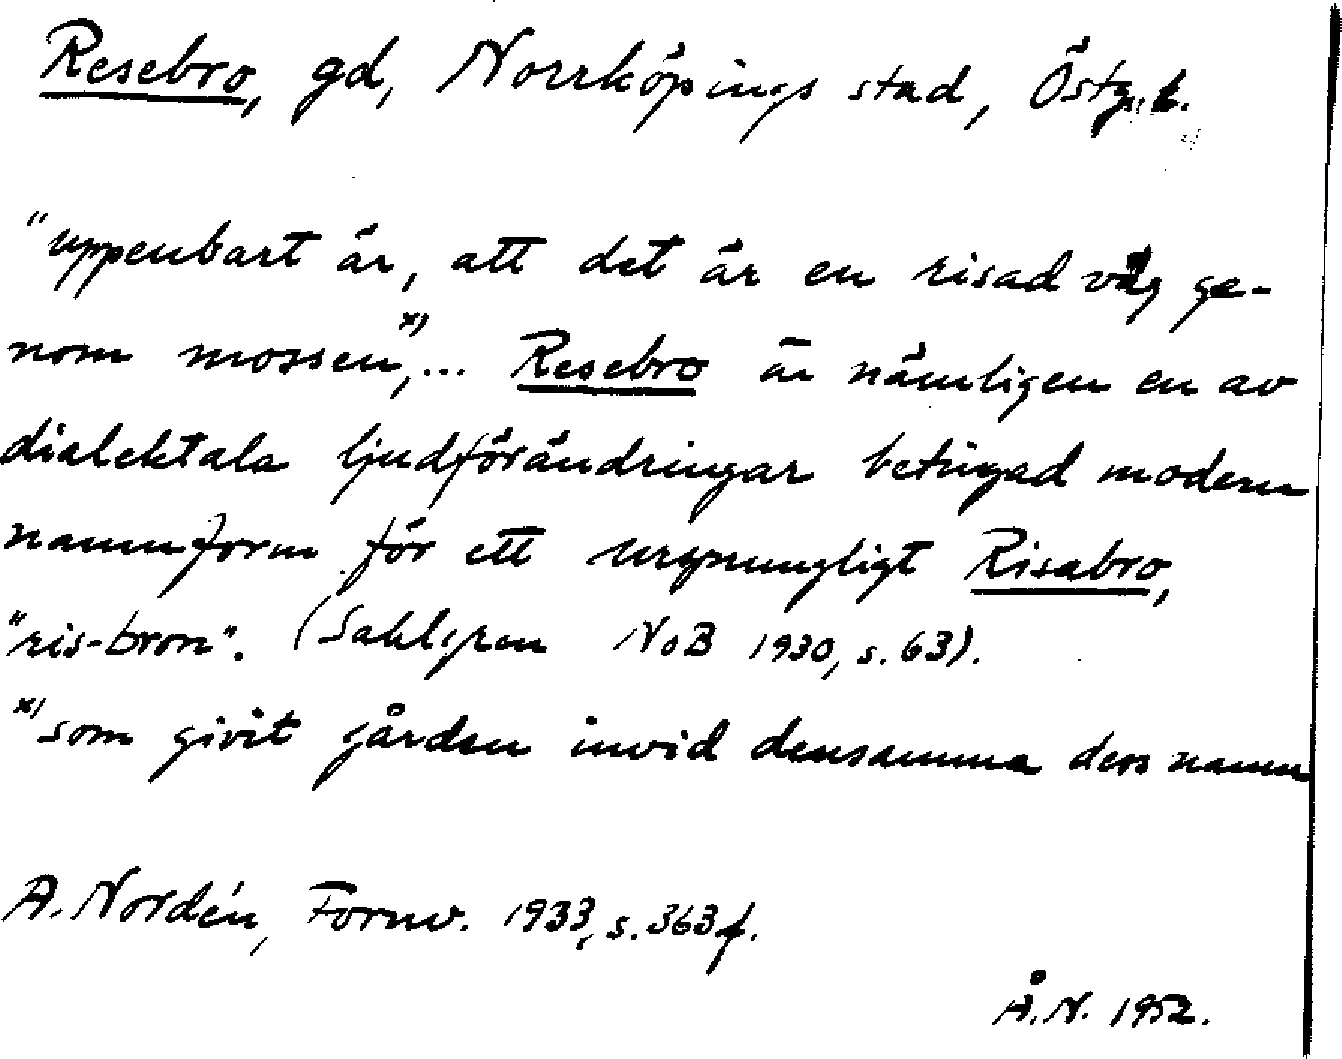 Resebro, gd, Norrköpings stad, Östg. l.
"uppenbart är, att det är en risad väg ge-
nom mossen,x) ... Resebro är nämligen en av
dialektala ljudförändringar betingad modern
namnform för ett ursprungligt Risabro,
"ris-bron". (Sahlgren NoB 1930, s. 63).
x) som givit gården invid densamma dess namn
A. Nordén, Fornv. 1933, s. 363 f.
Å.N. 1952.